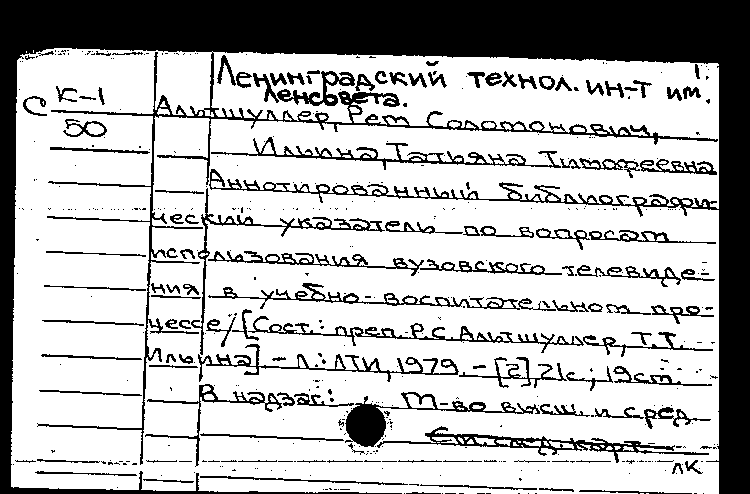 1.
Ленинградский технол. ин-т им.
Ленсовета.
С К-1
50
Альтшуллер, Рем Соломонович,
Ильина, Татьяна Тимофеевна
Аннотированный библиографи-
ческий указатель по вопросам
использования вузовского телевиде-
ния в учебно-воспитательном про-
цессе / [Сост.: преп. Р.С. Альтшуллер, Т.Т.
Ильина] - Л.: ЛТИ, 1979. - [2], 21с.; 19см.
В надзаг.: М-во высш. и сред.
См. след. карт.
ЛК